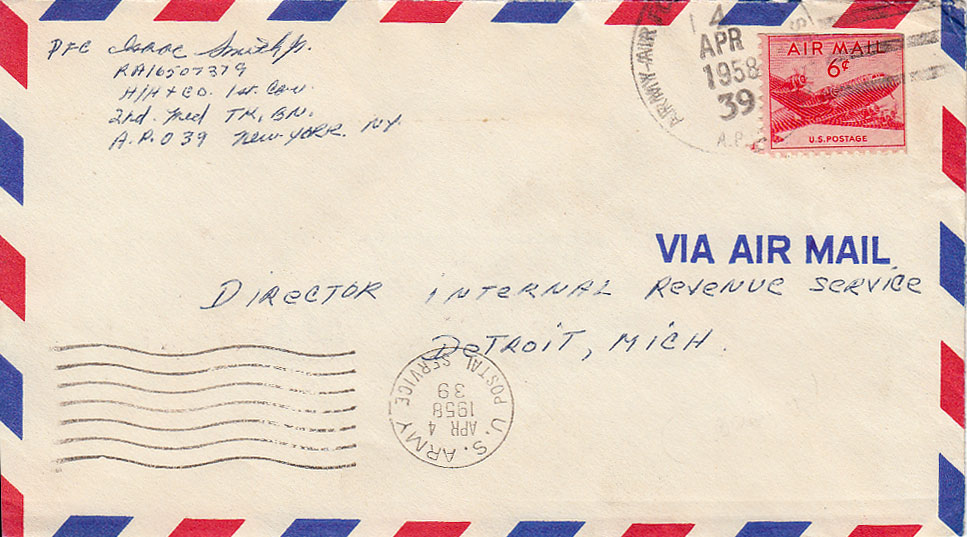 PFC Isaac Smith Jr.
RA16507379
H/H & CO. 1st. Cav.
2nd. Med TK. BN.
A.P.O 39 New York. NY.
ARMY-AIR
4
APR
1958
39
A.P.
AIR MAIL
6¢
U.S. POSTAGE
VIA AIR MAIL
DIRECTOR INTERNAL REVENUE SERVICE
DETROIT, MICH.
U.S. ARMY
APR 4
1958
39
POSTAL SERVICE